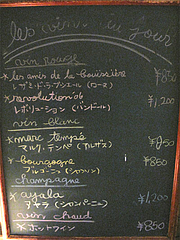 les vins du jour
vin Rouge
★les amis de la bouissière
レ・ザミ・ド・ラ・ブシエール (ローヌ) ¥850
★revolution '06
レボリューション (バンドール) ¥1,200
vin blanc
★marc tempé
マルク・テンペ (アルザス) ¥850
★bourgogne
ブルゴーニュ ¥850
champagne
★ayala
アヤラ (シャンパーニュ) ¥1,200
vin chaud
★ホットワイン ¥850